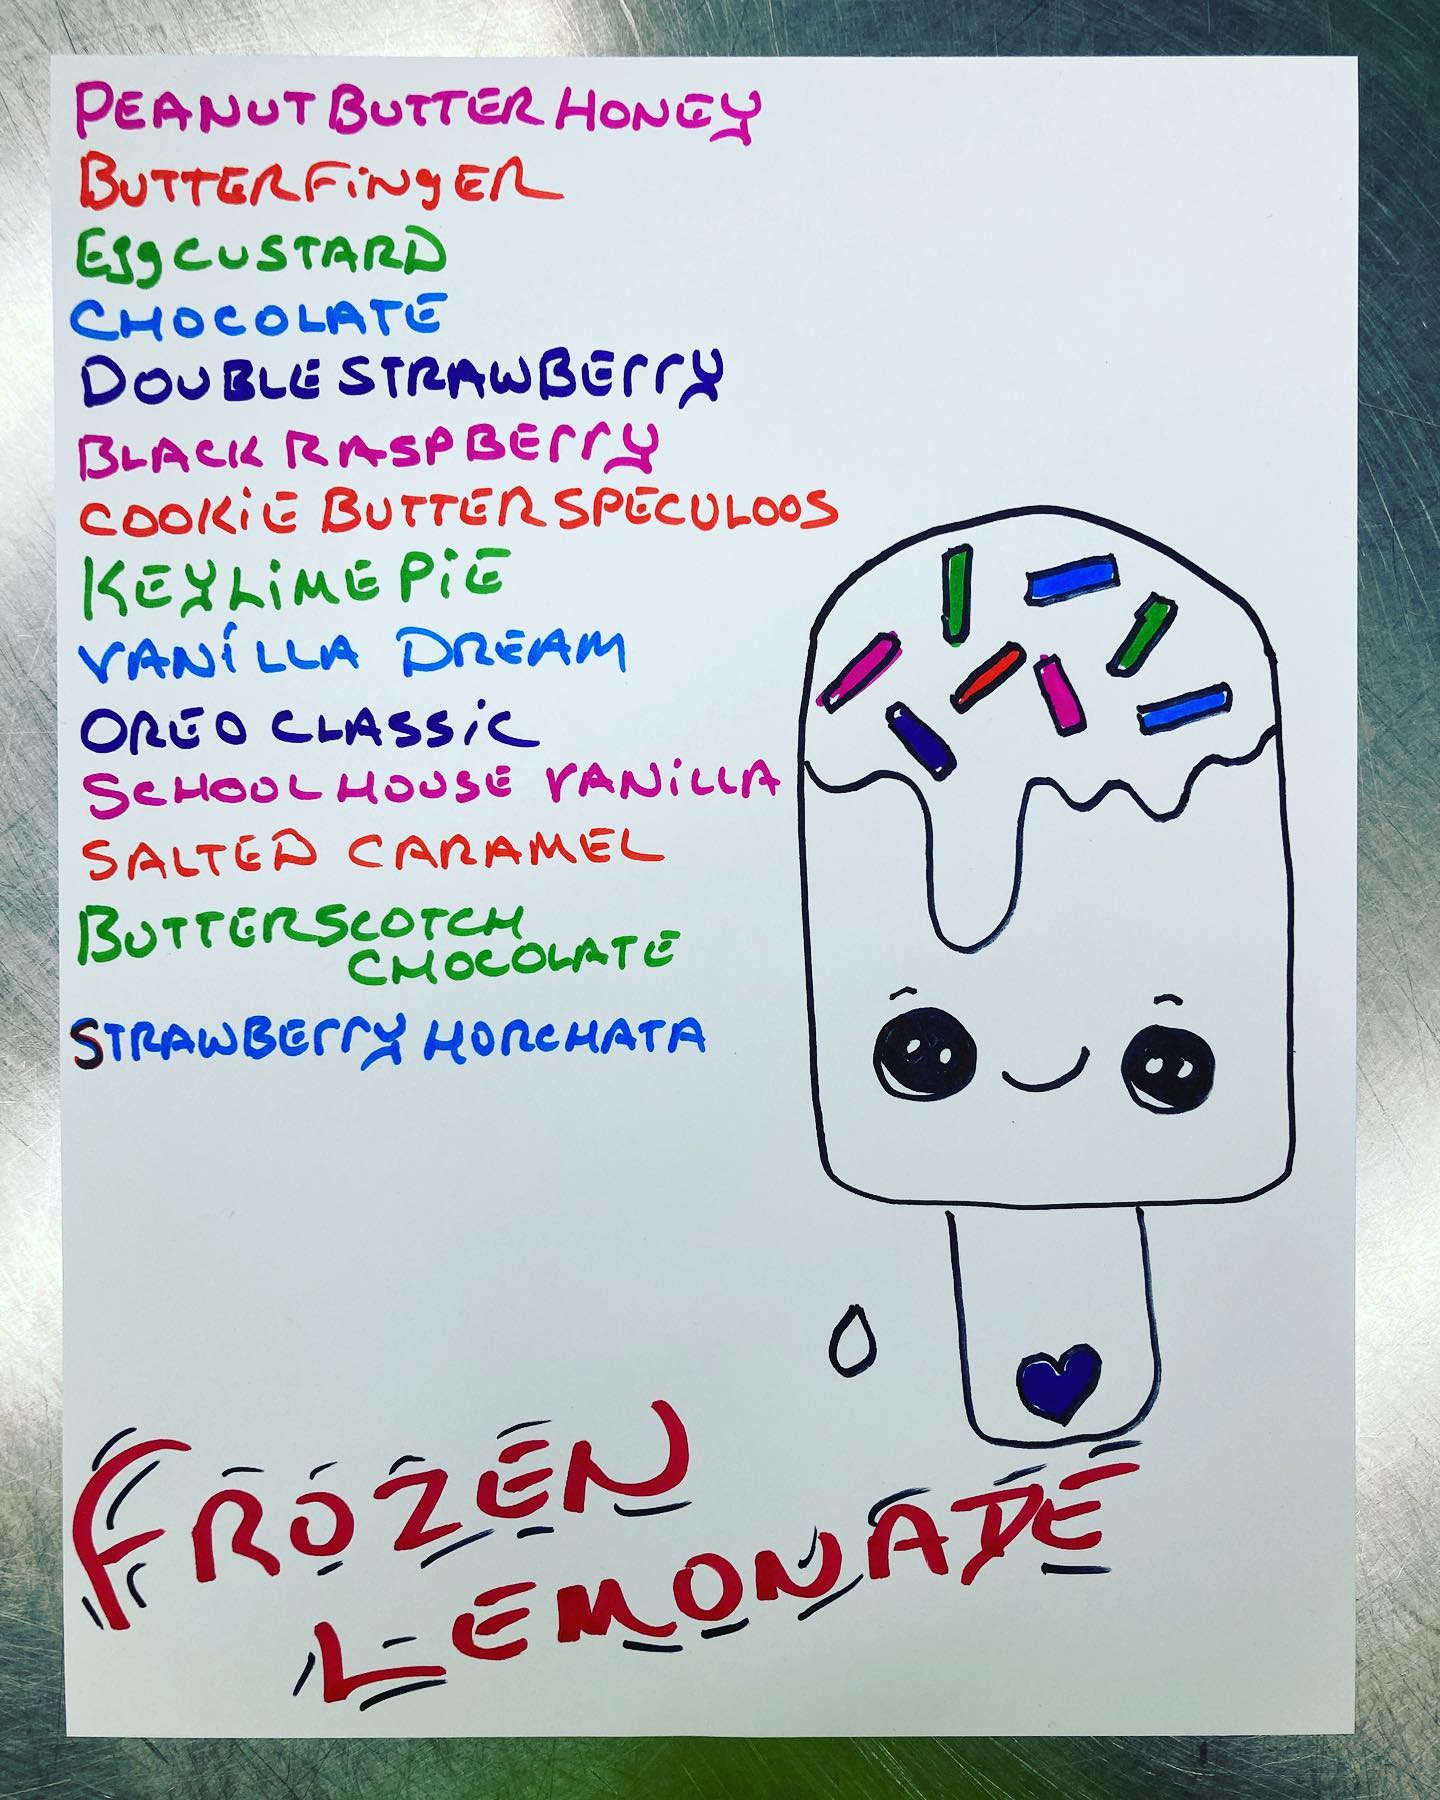 PEANUT BUTTER HONEY
BUTTERFiNgER
Egg CUSTARD
CHOCOLATE
DOUBLE STRAWBErrY
BLACK RASPBErrY
COOKiE BUTTER SPECULOOS
KEY LiME PiE
VANiLLA DREAM
OREO CLASSiC
SCHOOL HOUSE VANiLLA
SALTED CARAMEL
BUTTERSCOTCH
CHOCOLATE
STRAWBErrY HORCHATA
FROZEN
LEMONADE